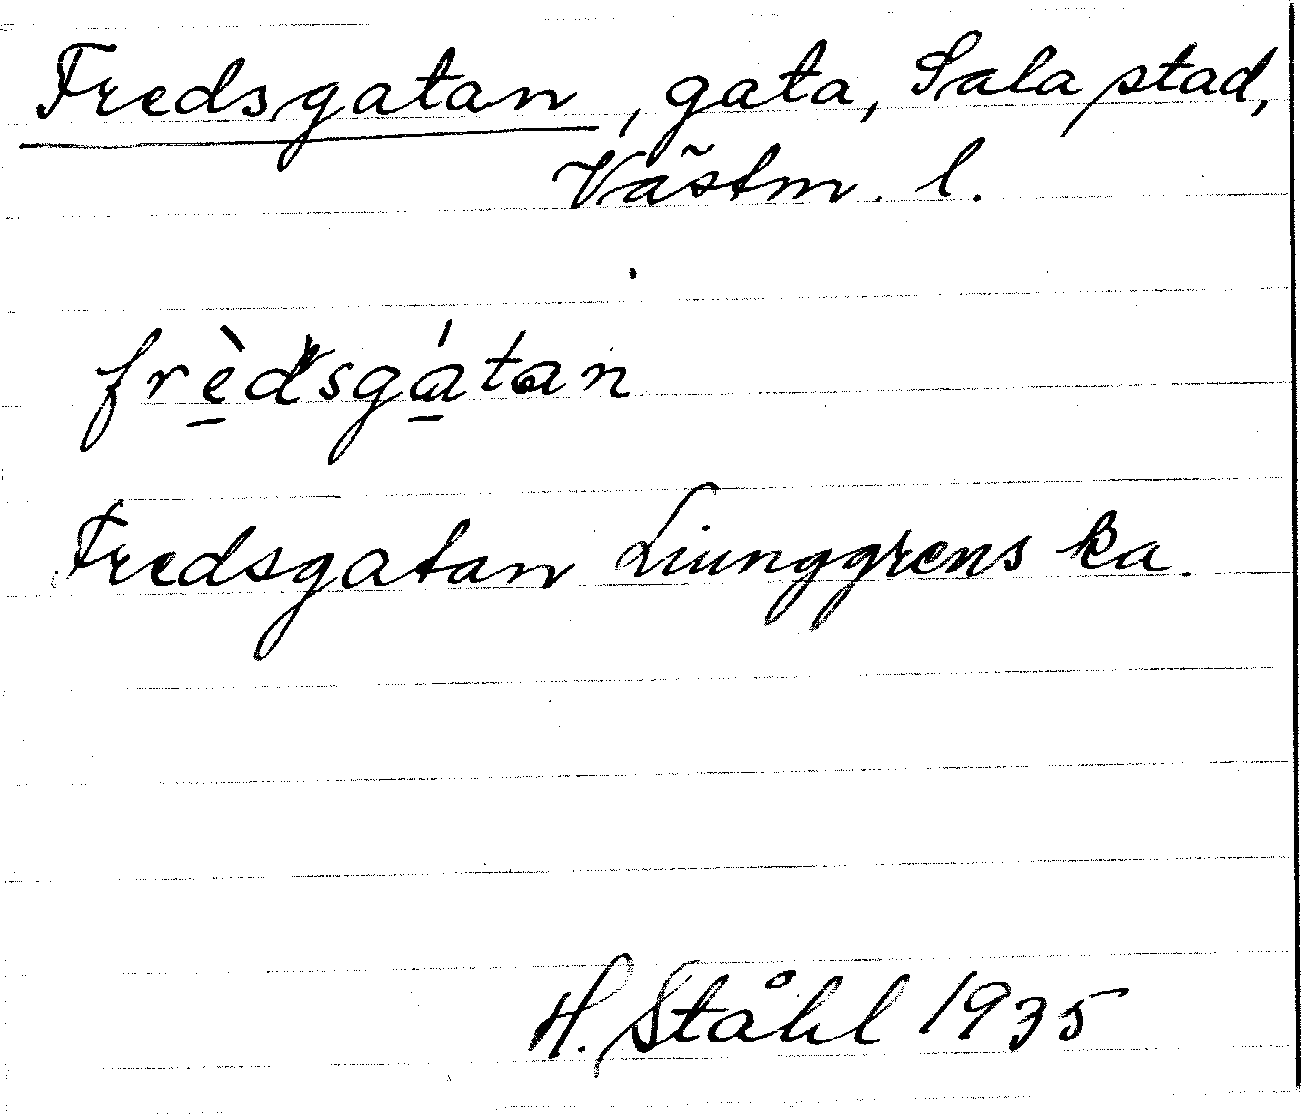 Fredsgatan, gata, Sala stad,
Västm. l.
frèdsgátan
Fredsgatan Liunggrens ka.
H. Ståhl 1935